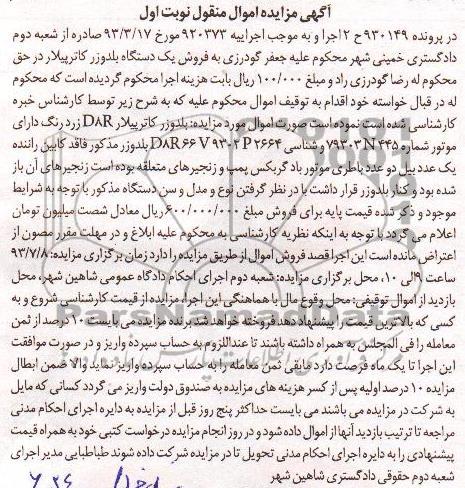 آگهی مزایده اموال منقول نوبت اول
در پرونده ۹۳۰۱۴۹ ح ۲ اجرا و به موجب اجراییه ۹۲۰۳۷۳ مورخ ۹۳/۳/۱۷ صادره از شعبه دوم
دادگستری خمینی شهر محکوم علیه جعفر گودرزی به فروش یک دستگاه بلدوزر کاترپیلار در حق
محکوم له رضا گودرزی راد و مبلغ ۱۰۰/۰۰۰ ریال بابت هزینه اجرا محکوم گردیده است که محکوم
له در قبال خواسته خود اقدام به توقیف اموال محکوم علیه که به شرح زیر توسط کارشناس خبره
کارشناسی شده است نموده است صورت اموال مورد مزایده: بلدوزر کاترپیلار D8R زرد رنگ دارای
موتور شماره ۷۹۳۰۳N۴۴۵ و شناسی D8R۶۶V۹۳۰۲P۲۶۶۴ بلدوزر مذکور فاقد کابین راننده
یک عدد بیل دو عدد باطری موتور باد گریکس پمپ و زنجیرهای متعلقه بوده است زنجیرهای آن باز
شده بود و کنار بلدوزر قرار داشت با در نظر گرفتن نوع و مدل و سن دستگاه مذکور با توجه به شرایط
موجود و ذکر شده قیمت پایه برای فروش مبلغ ۶۰۰/۰۰۰/۰۰۰ ریال معادل شصت میلیون تومان
اعلام می گردد با توجه به اینکه نظریه کارشناسی به محکوم علیه ابلاغ و در مهلت مقرر مصون از
اعتراض مانده است این اجرا قصد فروش اموال از طریق مزایده را دارد زمان برگزاری مزایده: ۹۳/۷/۸
ساعت ۹ الی ۱۰، محل برگزاری مزایده: شعبه دوم اجرای احکام دادگاه عمومی شاهین شهر، محل
بازدید از اموال توقیفی: محل وقوع مال با هماهنگی این اجرا، مزایده از قیمت کارشناسی شروع و به
کسی که بالاترین قیمت را پیشنهاد دهد فروخته خواهد شد برنده مزایده می بایست ۱۰ درصد از ثمن
معامله را فی المجلس به همراه داشته باشند تا عنداللزوم به حساب سپرده واریز و در صورت موافقت
این اجرا تا یک ماه فرصت دارد مابقی ثمن معامله را به حساب سپرده واریز نماید والا ضمن ابطال
مزایده ۱۰ درصد اولیه پس از کسر هزینه های مزایده به صندوق دولت واریز می گردد کسانی که مایل
به شرکت در مزایده می باشند می بایست حداکثر پنج روز قبل از مزایده به دایره اجرای احکام مدنی
مراجعه تا ترتیب بازدید آنها از اموال داده شود و در روز انجام مزایده درخواست کتبی خود به همراه قیمت
پیشنهادی را به دایره اجرای احکام مدنی تحویل تا در مزایده شرکت داده شوند طباطبایی مدیر اجرای
شعبه دوم حقوقی دادگستری شاهین شهر
ParsNamadData